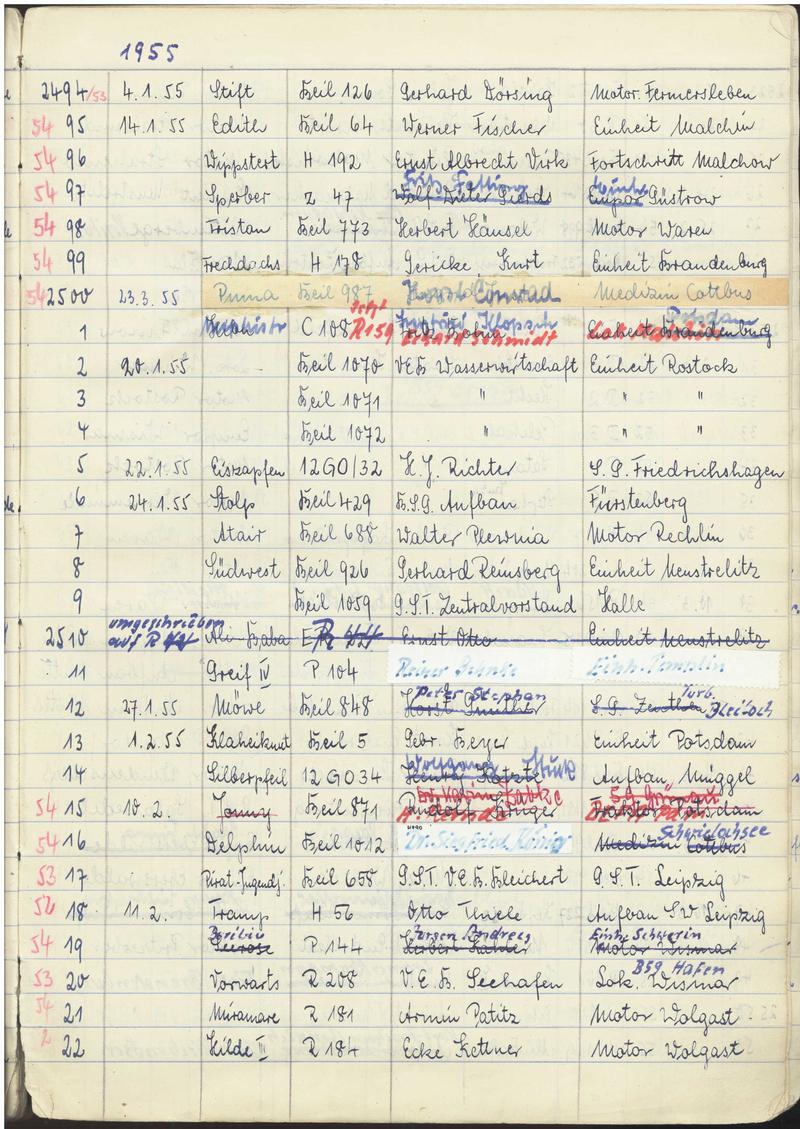 1955
2494/53 4.1.55 Stift Beil 126 Gerhard Dörsing Motor Fermersleben
54 95 14.1.55 Edith Beil 64 Werner Fischer Einheit Malchin
54 96 Wippstert H 192 Ernst Albrecht Virk Fortschritt Malchow
54 97 Sperber Z 47 Wolf Dieter Empor Güstrow
54 98 Tristan Beil 773 Herbert Häusel Motor Waren
54 99 Frechdachs H 178 Gericke Kurt Einheit Brandenburg
54 2500 23.3.55 Puma Beil 987 Horst Conrad Medizin Cottbus
jetzt Potsdam
1 C 108 R 159 Klopsch Erhard Schmidt Einheit Brandenburg
2 20.1.55 Beil 1070 VEB Wasserwirtschaft Einheit Rostock
3 Beil 1071 " " "
4 Beil 1072 " " "
5 22.1.55 Eiszapfen 12GO/32 H.J. Richter S.G. Friedrichshagen
6 24.1.55 Stolp Beil 429 B.S.G. Aufbau Fürstenberg
7 Atair Beil 688 Walter Plewnia Motor Rechlin
8 Südwest Beil 926 Gerhard Reinsberg Einheit Neustrelitz
9 Beil 1059 G.S.T. Zentralvorstand Halle
umgeschrieben
2510 auf R 44 Ali-Baba E R 44 Ernst Otto Einheit Neustrelitz
11 Greif IV P 104 Reiner Einh. Templin
Peter Stephan Turb.
12 27.1.55 Möwe Beil 848 Horst Günther S.G. Zeuthen Bleiloch
13 1.2.55 Klaheikuat Beil 5 Gebr. Beyer Einheit Potsdam
Wolfgang
14 Silberpfeil 12 GO34 Aufbau Müggel
54 15 10.2. Jonny Beil 871 Rudolf Krüger Potsdam
Schwielochsee
54 16 Delphin Beil 1012 Dr. Siegfried König Medizin Cottbus
53 17 Pirat-Jugendj. Beil 658 G.S.T. V.E.B. Bleichert G.S.T. Leipzig
56 18 11.2. Tramp H 56 Otto Thiele Aufbau SW Leipzig
Jürgen Andrees Einh. Schwerin
54 19 Seerose P 144 Herbert Motor Wismar
BSG Hafen
53 20 Vorwärts R 208 V.E.B. Seehafen Lok. Wismar
54 21 Miramare R 181 Armin Patitz Motor Wolgast
2 22 Hilde II R 184 Ecke Kettner Motor Wolgast